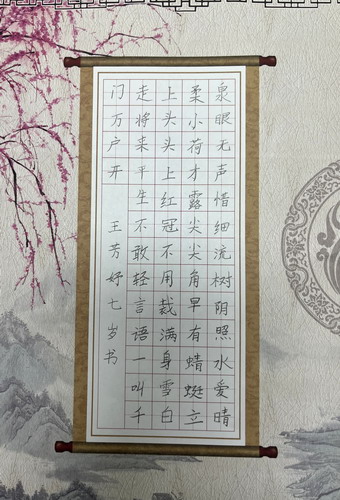 泉眼无声惜细流树阴照水爱晴
柔小荷才露尖尖角早有蜻蜓立
上头头上红冠不用裁满身雪白
走将来平生不敢轻言语一叫千
门万户开 王芳妤七岁书